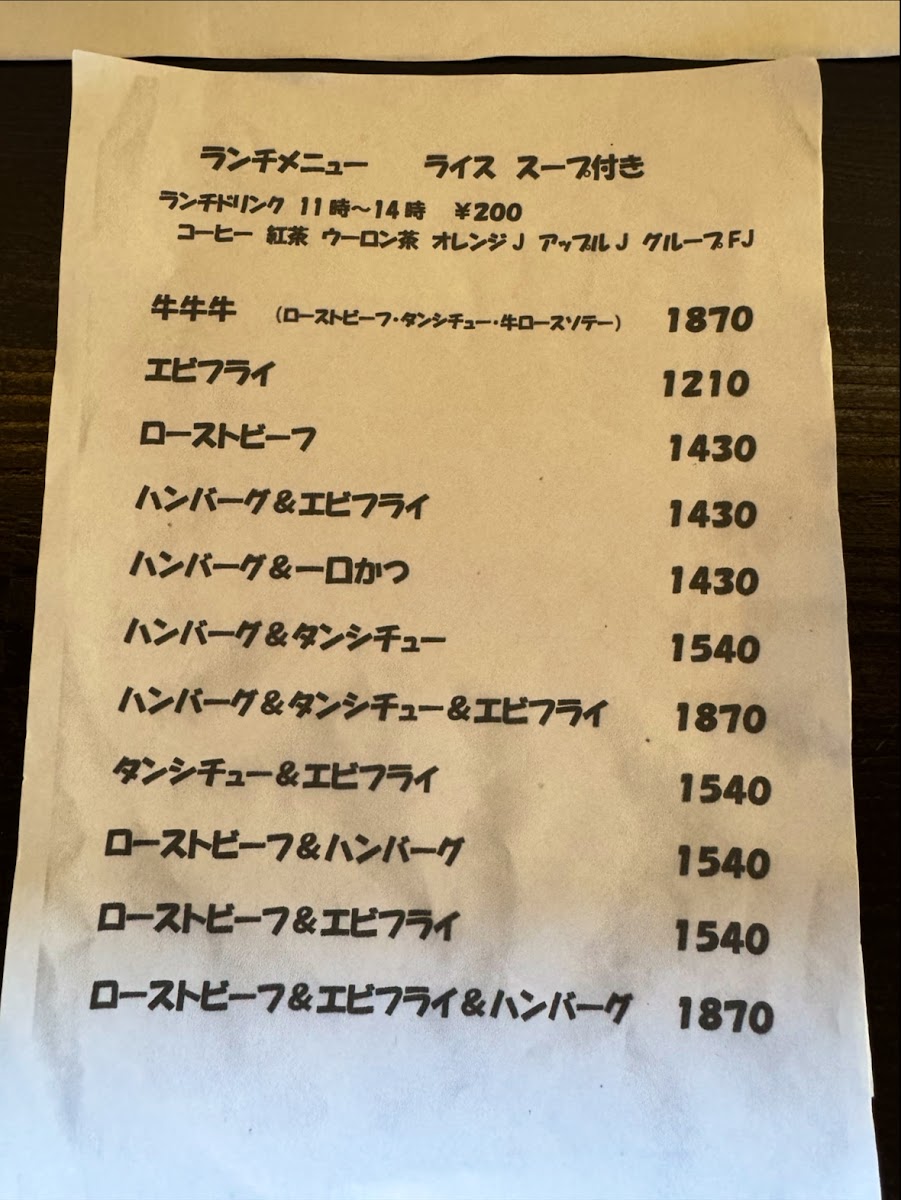 ランチメニュー ライス スープ付き
ランチドリンク 11時〜14時 ¥200
コーヒー 紅茶 ウーロン茶 オレンジJ アップルJ グループFJ
牛牛牛 (ローストビーフ・タンシチュー・牛ロースソテー) 1870
エビフライ 1210
ローストビーフ 1430
ハンバーグ&エビフライ 1430
ハンバーグ&一口かつ 1430
ハンバーグ&タンシチュー 1540
ハンバーグ&タンシチュー&エビフライ 1870
タンシチュー&エビフライ 1540
ローストビーフ&ハンバーグ 1540
ローストビーフ&エビフライ 1540
ローストビーフ&エビフライ&ハンバーグ 1870